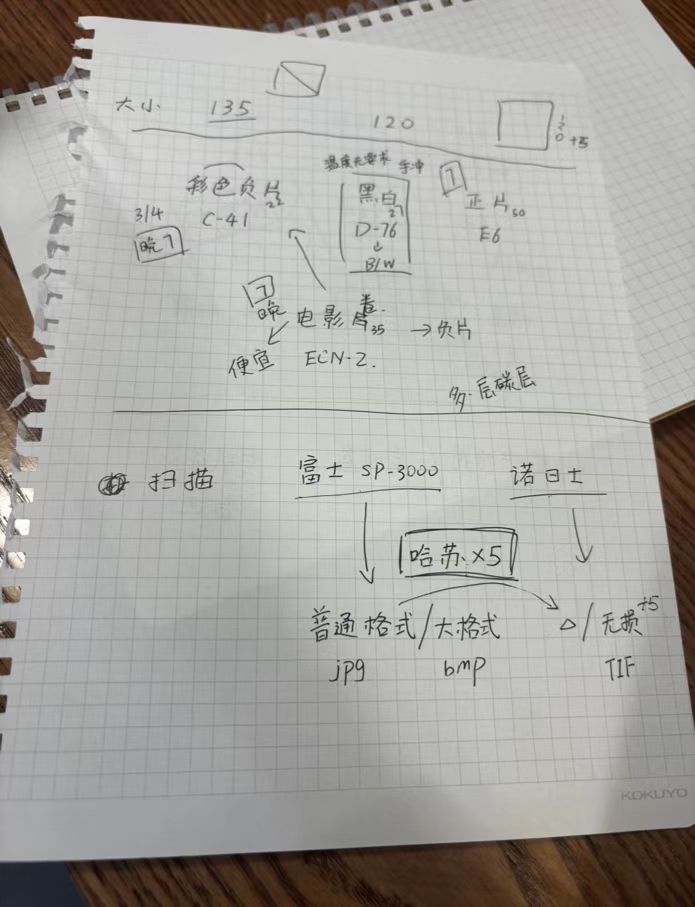 大小 135 120 120 +5
温度无要求 手冲
彩色负片 22 黑白 27 7 正片 50
3/4 C-41 D-76 E6
晚7 B/W
7
晚 电影卷 片 35 → 负片
便宜 ECN-2.
多层碳层
扫描 富士 SP-3000 诺日士
哈苏 X5
普通格式/大格式 △/无损 +5
jpg bmp TIF
KOKUYO